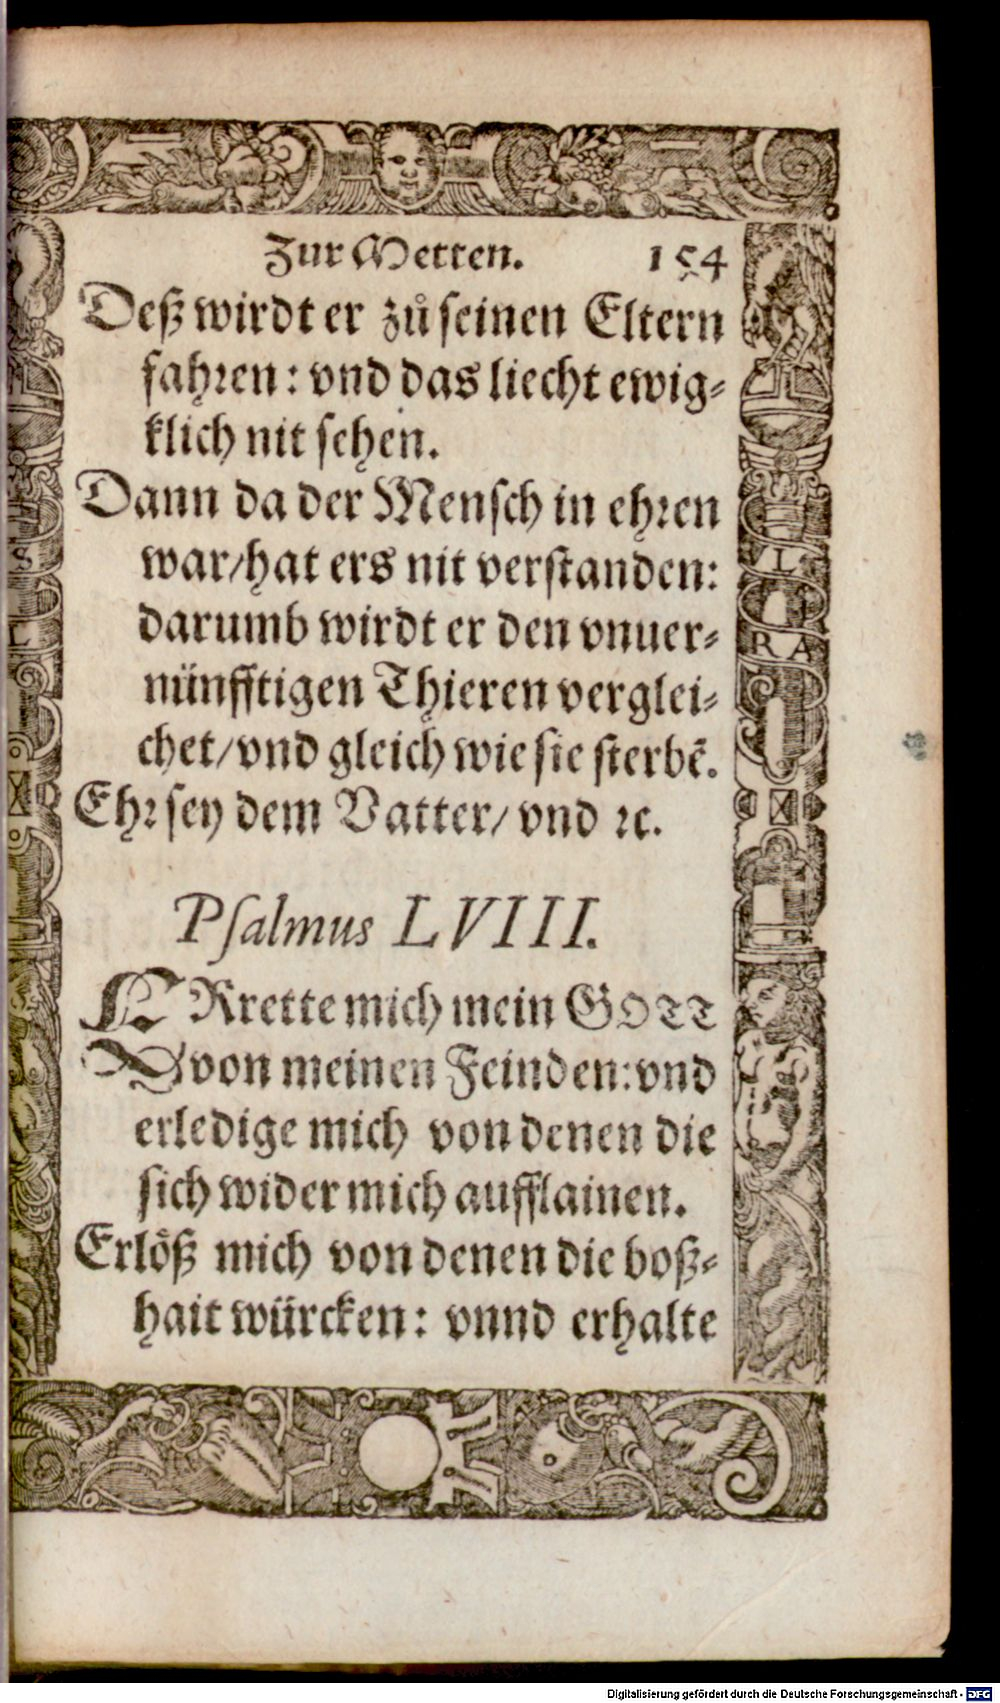 Zur Metten. 154
Deß wirdt er zuͦ seinen Eltern
fahren: vnd das liecht ewig-
klich nit sehen.
Dann da der Mensch in ehren
war/ hat ers nit verstanden:
darumb wirdt er den vnuer-
nünfftigen Thieren verglei-
chet/ vnd gleich wie sie sterbē.
Ehr sey dem Vatter/ vnd ꝛc.
Psalmus LVIII.
ERrette mich mein GOTT
von meinen Feinden: vnd
erledige mich von denen die
sich wider mich aufflainen.
Erlöß mich von denen die boß-
hait würcken: vnnd erhalte
S
L
L
RA
Digitalisierung gefördert durch die Deutsche Forschungsgemeinschaft - DFG